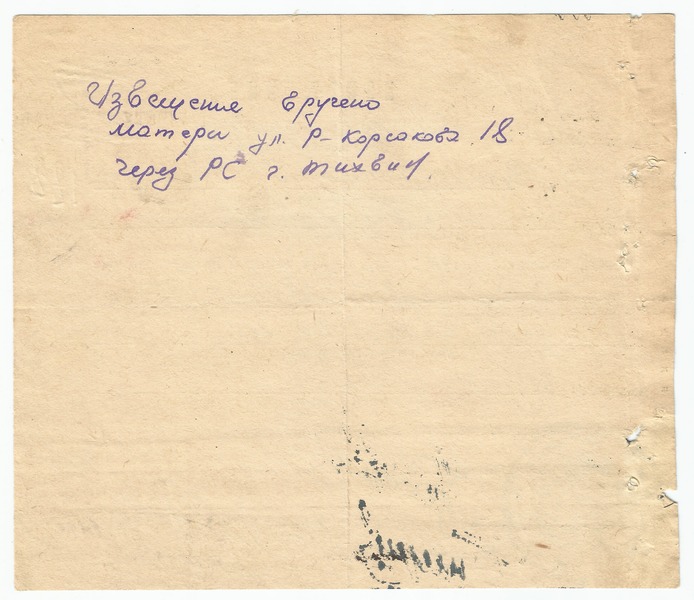 Извещение вручено
матери ул. Р-Корсакова 18
через РС г. Тихвин.